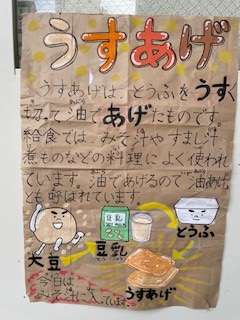 うすあげ
うすあげは、とうふをうすく
切って油であげたものです。
給食では、みそ汁やすまし汁
煮ものなどの料理によく使われ
ています。油であげるので「油あげ」
とも呼ばれています。
大豆
豆乳
豆乳
とうふ
うすあげ
今日は
に入っています。